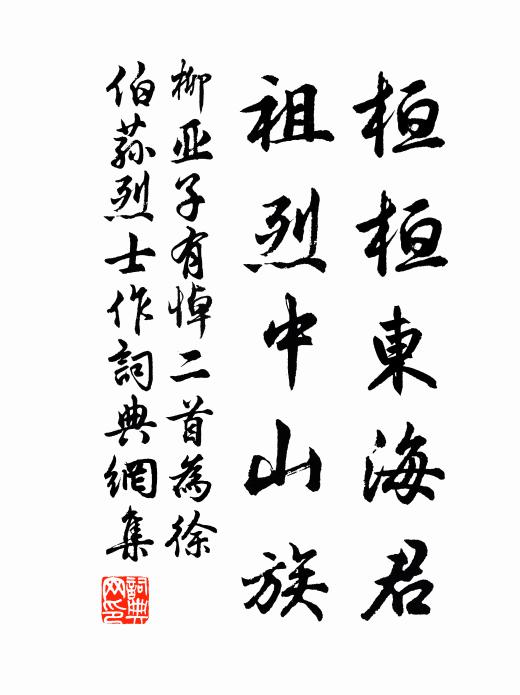 桓桓東海君
祖烈中山族
柳亚子有悼二首為徐
伯蓀烈士作詞典網集
詞典
网印